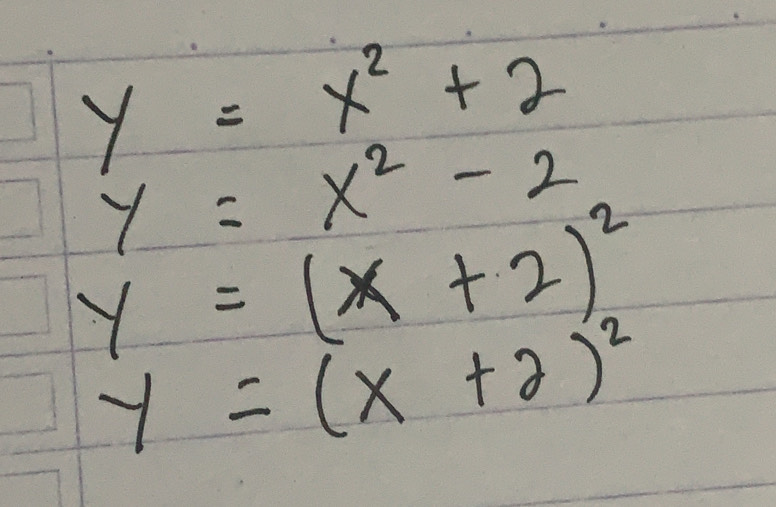 y = x² + 2
y = x² - 2
y = (x + 2)²
y = (x + 2)²